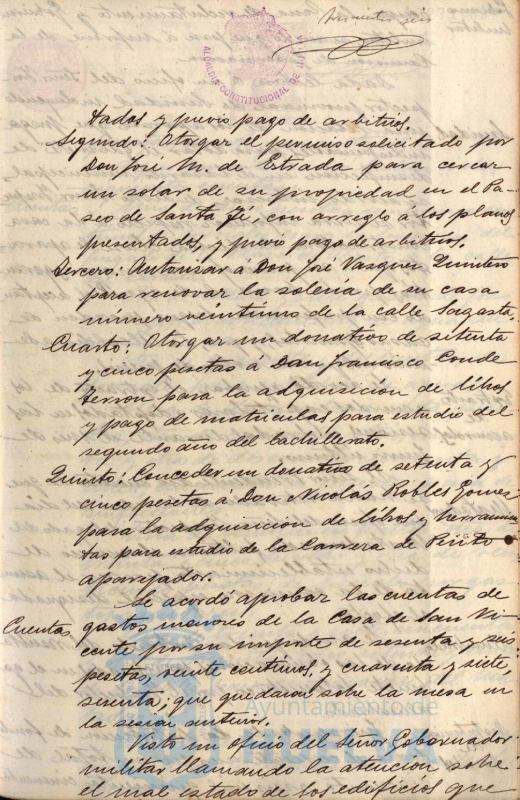 ALCALDIA CONSTITUCIONAL DE
tados y previo pago de arbitrios.
Segundo: Otorgar el permiso solicitado por
Don José M. de Estrada para cercar
un solar de su propiedad en el Pa-
seo de Santa Fé, con arreglo á los planos
presentados, y previo pago de arbitrios.
Tercero: Autorizar á Don José Vazquez Quintero
para renovar la solería de su casa
número veintiuno de la calle Sagasta.
Cuarto: Otorgar un donativo de setenta
y cinco pesetas á Don Francisco Conde
Terron para la adquisición de libros
y pago de matriculas para estudio del
segundo año del bachillerato.
Quinto: Conceder un donativo de setenta y
cinco pesetas á Don Nicolás Robles Gomez
para la adquisicion de libros y herramien
tas para estudio de la Carrera de Perito
aparejador.
Se acordó aprobar las cuentas de
Cuentas gastos menores de la Casa de San Vi-
cente por su importe de sesenta y seis
pesetas, veinte centimos, y cuarenta y siete,
sesenta; que quedaron sobre la mesa en
la sesion anterior.
Ayuntamiento de
HUELVA
Visto un oficio del Señor Gobernador
militar llamando la atención sobre
el mal estado de los edificios que